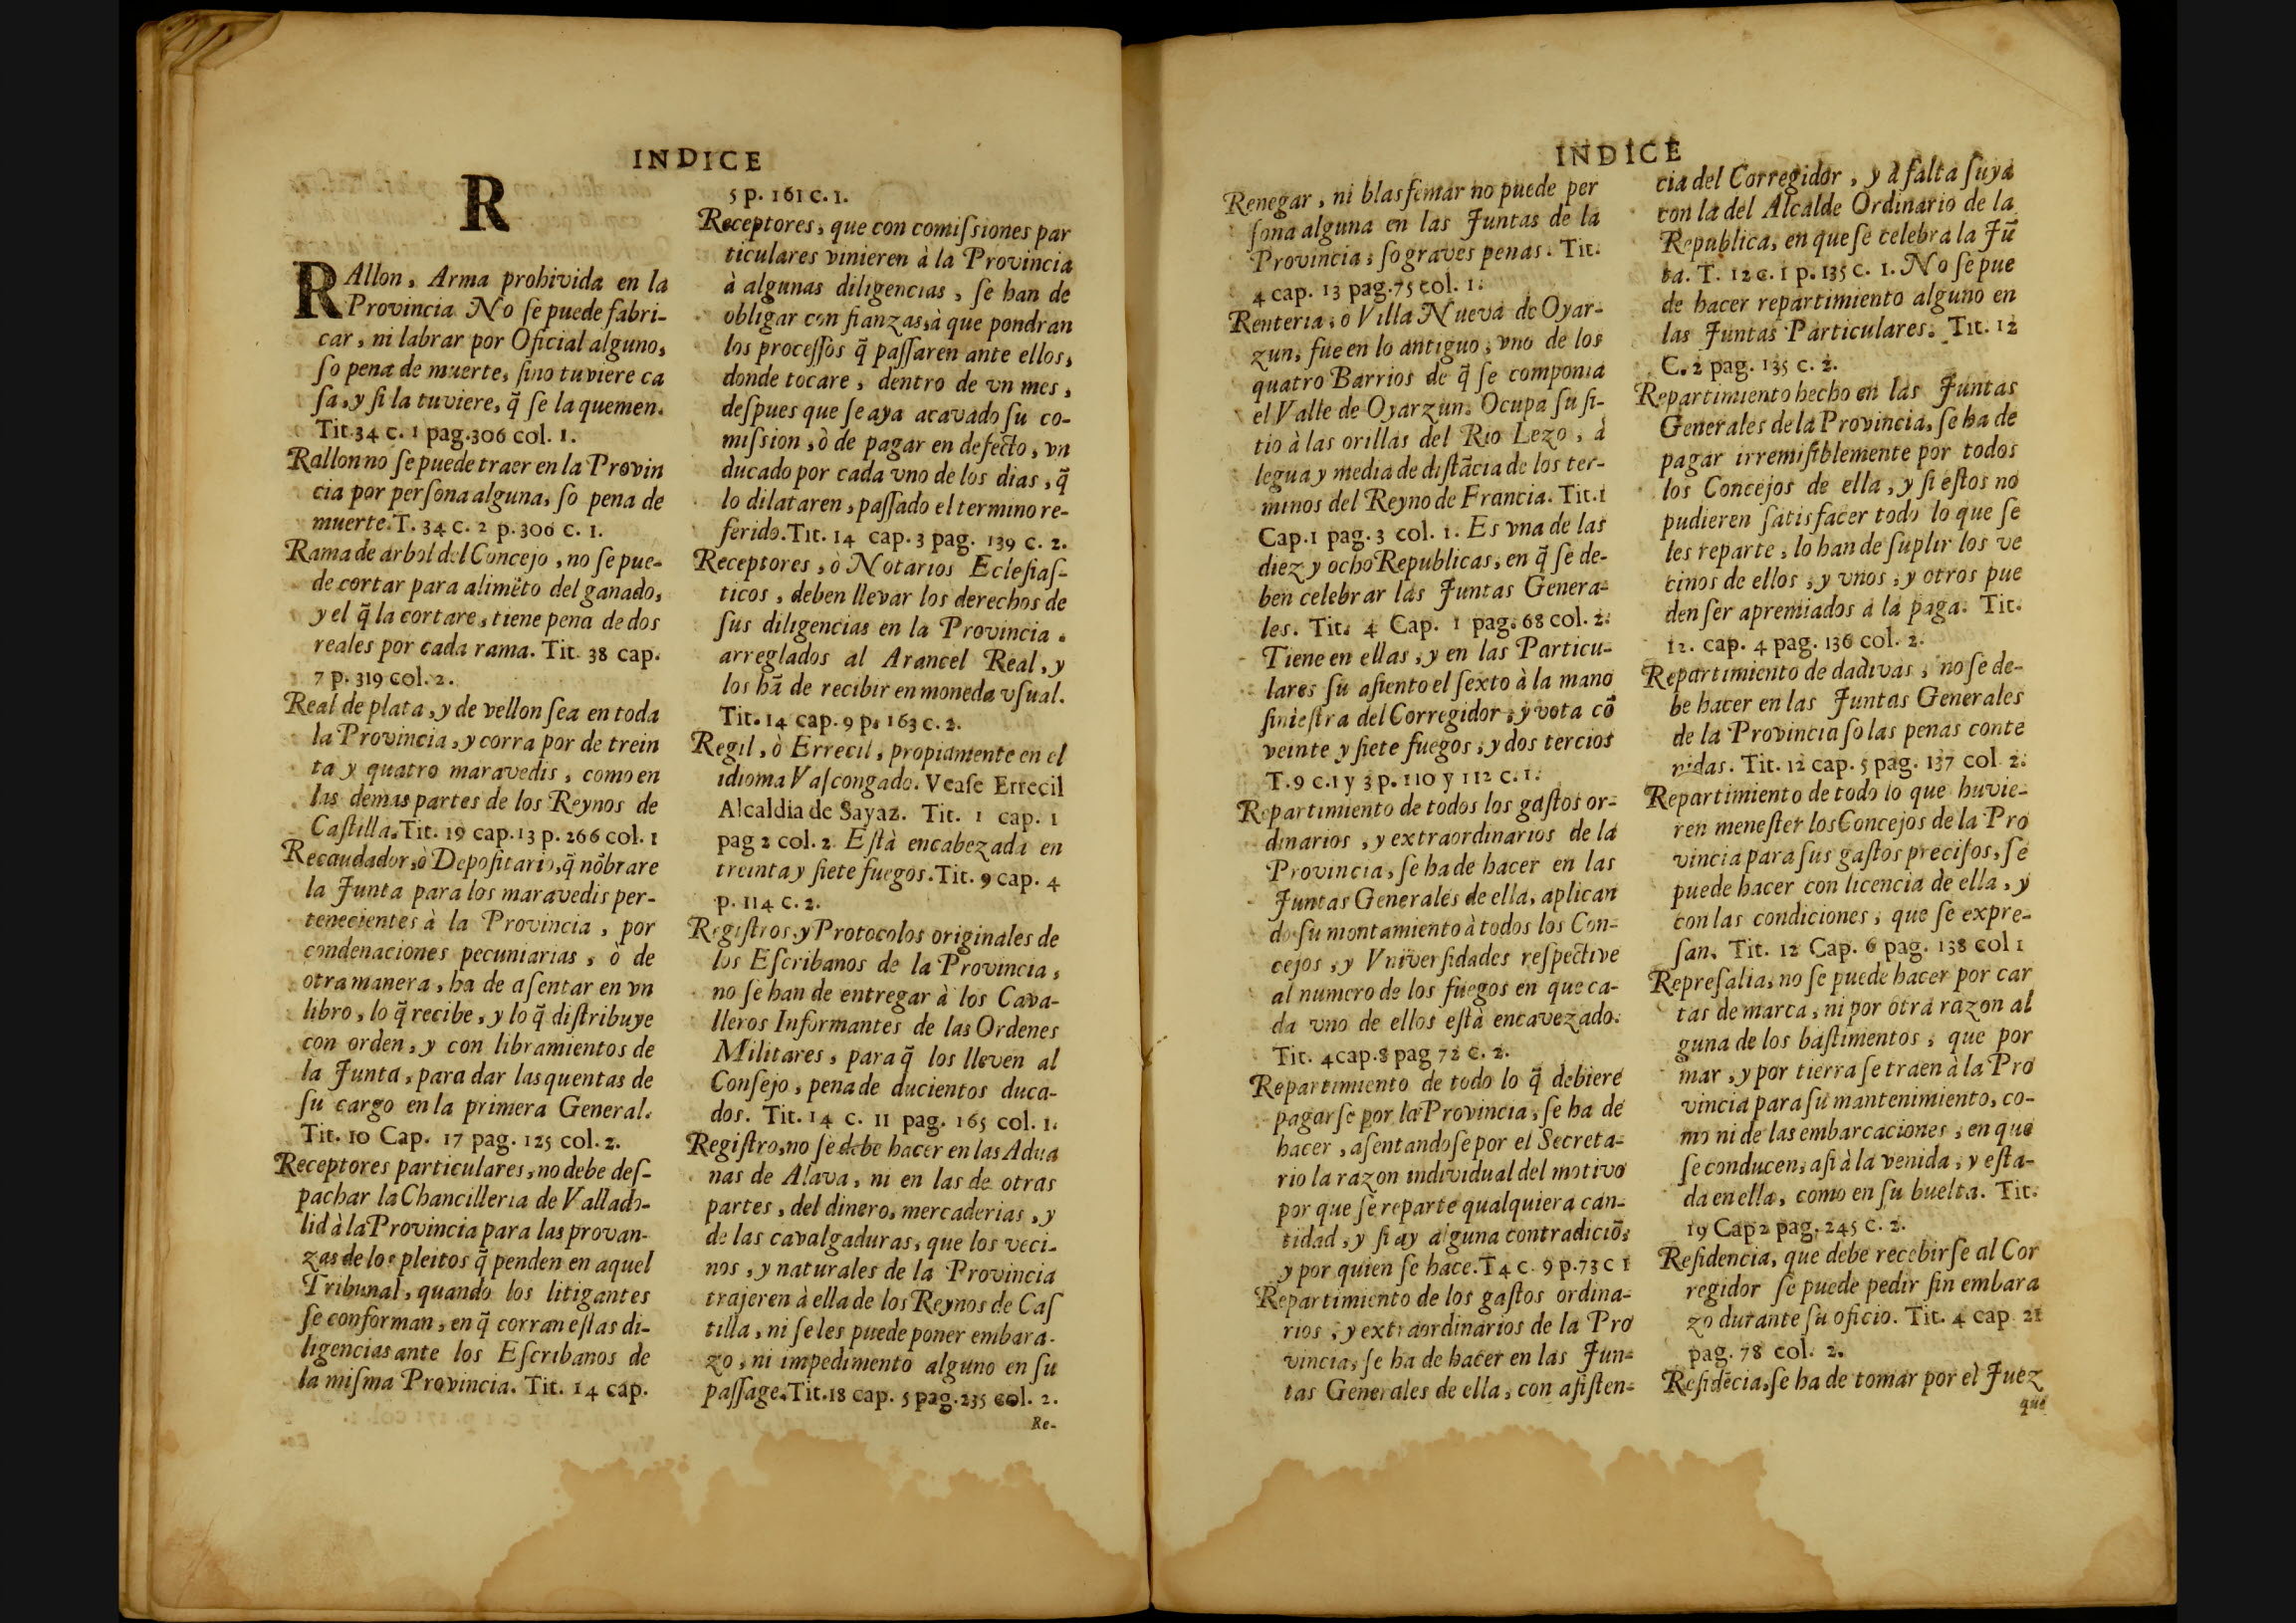 INDICE
R
RAllon, Arma prohivida en la
Provincia No ſe puede fabri-
car, ni labrar por Oficial alguno,
ſo pena de muerte, ſino tuviere ca
ſa, y ſi la tuviere, q̃ ſe la quemen.
Tit.34 c. 1 pag.306 col. 1.
Rallon no ſe puede traer en la Provin
cia por perſona alguna, ſo pena de
muerte.T. 34 c. 2 p.306 c. 1.
Rama de arbol del Concejo, no ſe pue-
de cortar para alimẽto del ganado,
y el q̃ la cortare, tiene pena de dos
reales por cada rama. Tit. 38 cap.
7 p. 319 col. 2.
Real de plata, y de vellon ſea en toda
la Provincia, y corra por de trein
ta y quatro maravedis, como en
las demas partes de los Reynos de
Caſtilla.Tit. 19 cap.13 p. 266 col. 1
Recaudador, ò Depoſitario, q̃ nõbrare
la Junta para los maravedis per-
tenecientes à la Provincia, por
condenaciones pecuniarias, ò de
otra manera, ha de aſentar en vn
libro, lo q̃ recibe, y lo q̃ diſtribuye
con orden, y con libramientos de
la Junta, para dar las quentas de
ſu cargo en la primera General.
Tit. 10 Cap. 17 pag. 125 col. 2.
Receptores particulares, no debe deſ-
pachar la Chancilleria de Vallado-
lid à la Provincia para las provan-
zas de los pleitos q̃ penden en aquel
Tribunal, quando los litigantes
ſe conforman, en q̃ corran eſtas di-
ligencias ante los Eſcribanos de
la miſma Provincia. Tit. 14 cap.
5 p. 161 c. 1.
Receptores, que con comiſsiones par
ticulares vinieren à la Provincia
à algunas diligencias, ſe han de
obligar con fianzas, à que pondran
los proceſſos q̃ paſſaren ante ellos,
donde tocare, dentro de vn mes,
deſpues que ſe aya acavado ſu co-
miſsion, ò de pagar en defecto, vn
ducado por cada vno de los dias, q̃
lo dilataren, paſſado el termino re-
ferido.Tit. 14 cap. 3 pag. 139 c. 2.
Receptores, ò Notarios Ecleſiaſ-
ticos, deben llevar los derechos de
ſus diligencias en la Provincia.
arreglados al Arancel Real, y
los hã de recibir en moneda vſual.
Tit. 14 cap. 9 p. 163 c. 2.
Regil, ò Errecil, propiamente en el
idioma Vaſcongado. Veaſe Errecil
Alcaldia de Sayaz. Tit. 1 cap. 1
pag 2 col. 2. Eſtà encabezada en
treinta y ſiete fuegos.Tit. 9 cap. 4
p. 114 c. 2.
Regiſtros, y Protocolos originales de
los Eſcribanos de la Provincia,
no ſe han de entregar à los Cava-
lleros Informantes de las Ordenes
Militares, para q̃ los lleven al
Conſejo, pena de ducientos duca-
dos. Tit. 14 c. 11 pag. 165 col. 1.
Regiſtro, no ſe debe hacer en las Adua
nas de Alava, ni en las de otras
partes, del dinero, mercaderias, y
de las cavalgaduras, que los veci-
nos, y naturales de la Provincia
trajeren à ella de los Reynos de Caſ
tilla, ni ſeles puede poner embara-
zo, ni impedimento alguno en ſu
paſſage.Tit.18 cap. 5 pag.235 col. 2.
Re-
INDICE
Renegar, ni blasfemar no puede per
ſona alguna en las Juntas de la
Provincia, ſo graves penas. Tit.
4 cap. 13 pag.75 col. 1.
Renteria, ò Villa Nueva de Oyar-
zun, fue en lo antiguo, vno de los
quatro Barrios de q̃ ſe componia
el Valle de Oyarzun. Ocupa ſu ſi-
tio à las orillas del Rio Lezo, à
legua y media de diſtãcia de los ter-
minos del Reyno de Francia. Tit.1
Cap.1 pag. 3 col. 1. Es vna de las
diez y ocho Republicas, en q̃ ſe de-
ben celebrar las Juntas Genera-
les. Tit. 4 Cap. 1 pag. 68 col. 2.
Tiene en ellas, y en las Particu-
lares ſu aſiento el ſexto à la mano
ſinieſtra del Corregidor, y vota cõ
veinte y ſiete fuegos, y dos tercios
T.9 c.1 y 3 p. 110 y 112 c. 1.
Repartimiento de todos los gaſtos or-
dinarios, y extraordinarios de la
Provincia, ſe ha de hacer en las
Juntas Generales de ella, aplican
do ſu montamiento à todos los Con-
cejos, y Vniverſidades reſpective
al numero de los fuegos en que ca-
da vno de ellos eſtà encavezado.
Tit. 4 cap.8 pag 72 c. 2.
Repartimiento de todo lo q̃ debiere
pagarſe por la Provincia, ſe ha de
hacer, aſentandoſe por el Secreta-
rio la razon individual del motivo
por que ſe reparte qualquiera can-
tidad, y ſi ay alguna contradiciõ,
y por quien ſe hace.T 4 c. 9 p.73 c 1
Repartimiento de los gaſtos ordina-
rios, y extraordinarios de la Pro
vincia, ſe ha de hacer en las Jun-
tas Generales de ella, con aſiſten-
cia del Corregidor, y à falta ſuya
con la del Alcalde Ordinario de la
Republica, en que ſe celebra la Jũ
ta. T. 12 c. 1 p. 135 c. 1. No ſe pue
de hacer repartimiento alguno en
las Juntas Particulares. Tit. 12
C. 2 pag. 135 c. 2.
Repartimiento hecho en las Juntas
Generales de la Provincia, ſe ha de
pagar irremiſiblemente por todos
los Concejos de ella, y ſi eſtos no
pudieren ſatisfacer todo lo que ſe
les reparte, lo han de ſuplir los ve
cinos de ellos, y vnos, y otros pue
den ſer apremiados à la paga. Tit.
12. cap. 4 pag. 136 col. 2.
Repartimiento de dadivas, no ſe de-
be hacer en las Juntas Generales
de la Provincia ſo las penas conte
nidas. Tit. 12 cap. 5 pag. 137 col. 2.
Repartimiento de todo lo que huvie-
ren meneſter los Concejos de la Pro
vincia para ſus gaſtos preciſos, ſe
puede hacer con licencia de ella, y
con las condiciones, que ſe expre-
ſan. Tit. 12 Cap. 6 pag. 138 col 1
Repreſalia, no ſe puede hacer por car
tas de marca, ni por otra razon al
guna de los baſtimentos, que por
mar, y por tierra ſe traen à la Pro
vincia para ſu mantenimiento, co-
mo ni de las embarcaciones, en que
ſe conducen, aſi à la venida, y eſta-
da en ella, como en ſu buelta. Tit.
19 Cap 2 pag. 245 c. 2.
Reſidencia, que debe recebirſe al Cor
regidor ſe puede pedir ſin embara
zo durante ſu oficio. Tit. 4 cap. 21
pag. 78 col. 2.
Reſidẽcia, ſe ha de tomar por el Juez
que